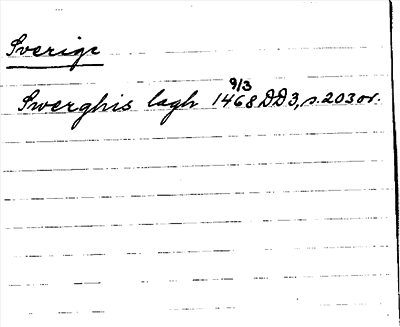 Sverige
Swerghis lagh 1468 9/3 DD3, s. 203 or.